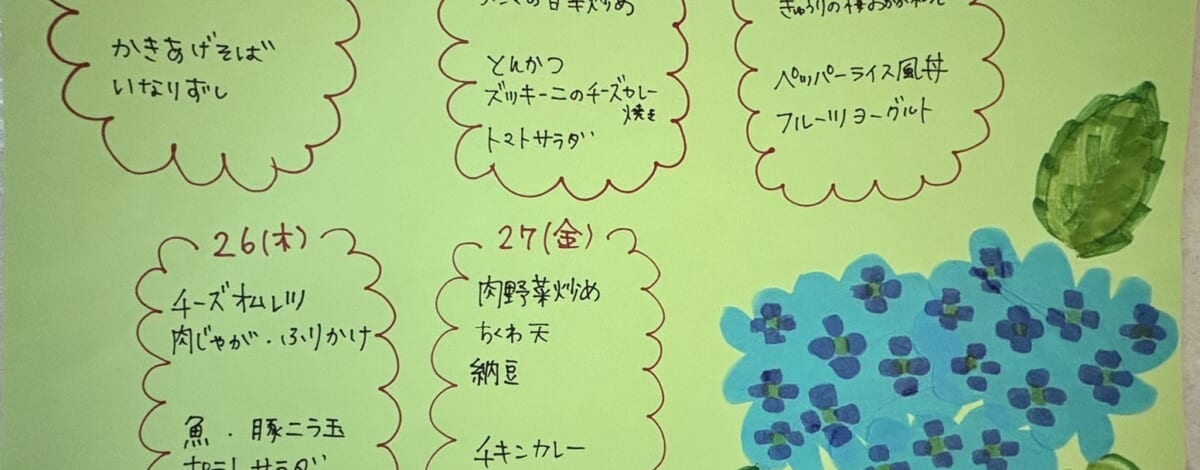 かきあげそば
いなりずし
の甘辛炒め
とんかつ
ズッキーニのチーズカレー
焼き
トマトサラダ
きゅうりの梅おかか和え
ペッパーライス風丼
フルーツヨーグルト
26(木)
チーズオムレツ
肉じゃが・ふりかけ
魚・豚ニラ玉
サラダ
27(金)
肉野菜炒め
ちくわ天
納豆
チキンカレー